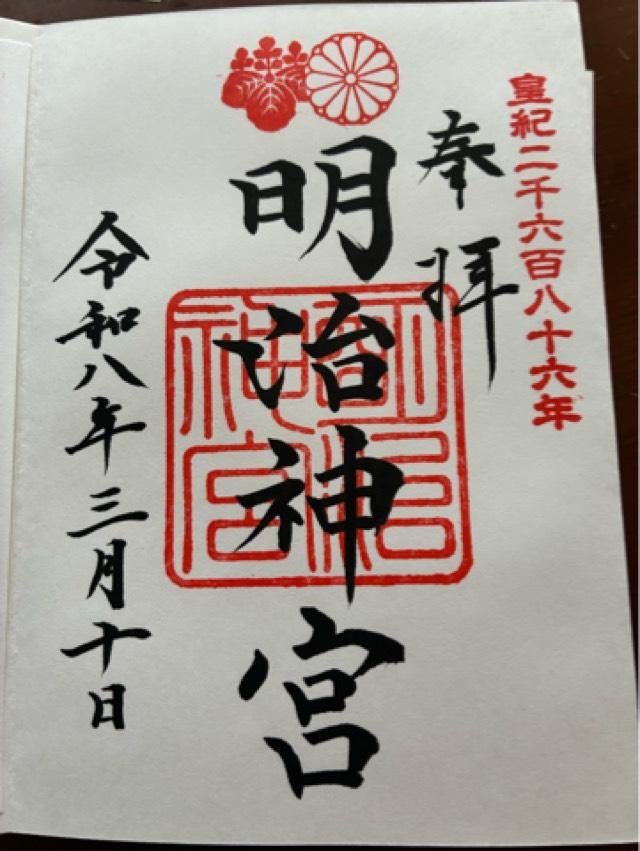 皇紀二千六百八十六年
奉拝
明治神宮
明治神宮
令和八年三月十日